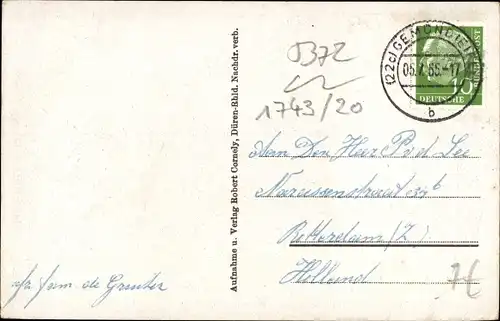 0372
1743/20
(22c) GEMÜND (EIFEL)
05.7.55.-17
b
10
DEUTSCHE
Aufnahme u. Verlag Robert Cornely, Düren-Rhld. Nachdr. verb.
Den Heer
Narcissenstraat
Rotterdam (Z.)
Holland
afz fam. de
7€